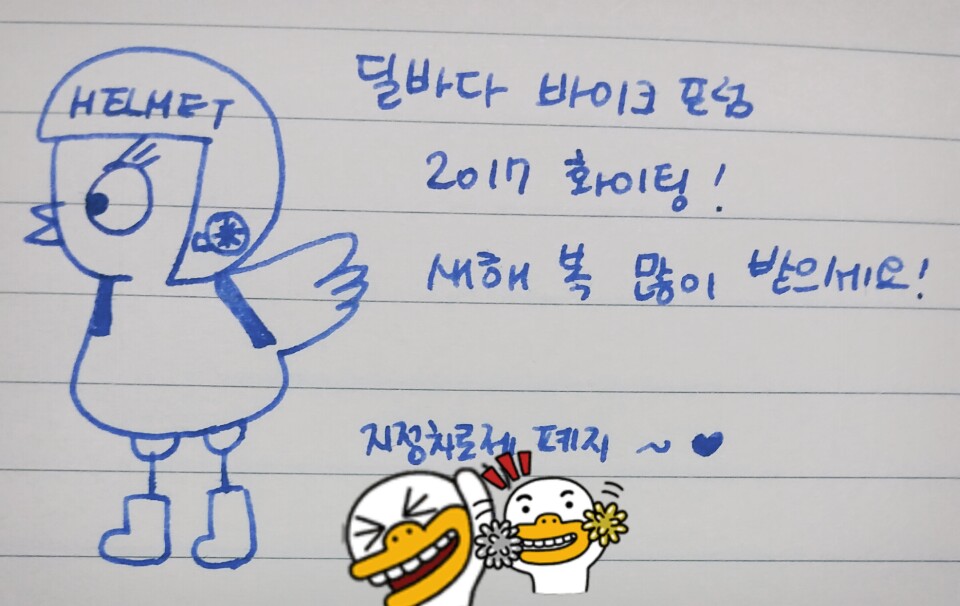 HELMET
딜바다 바이크 포럼
2017 화이팅!
새해 복 많이 받으세요!
지정차로제 폐지 ~ ♥